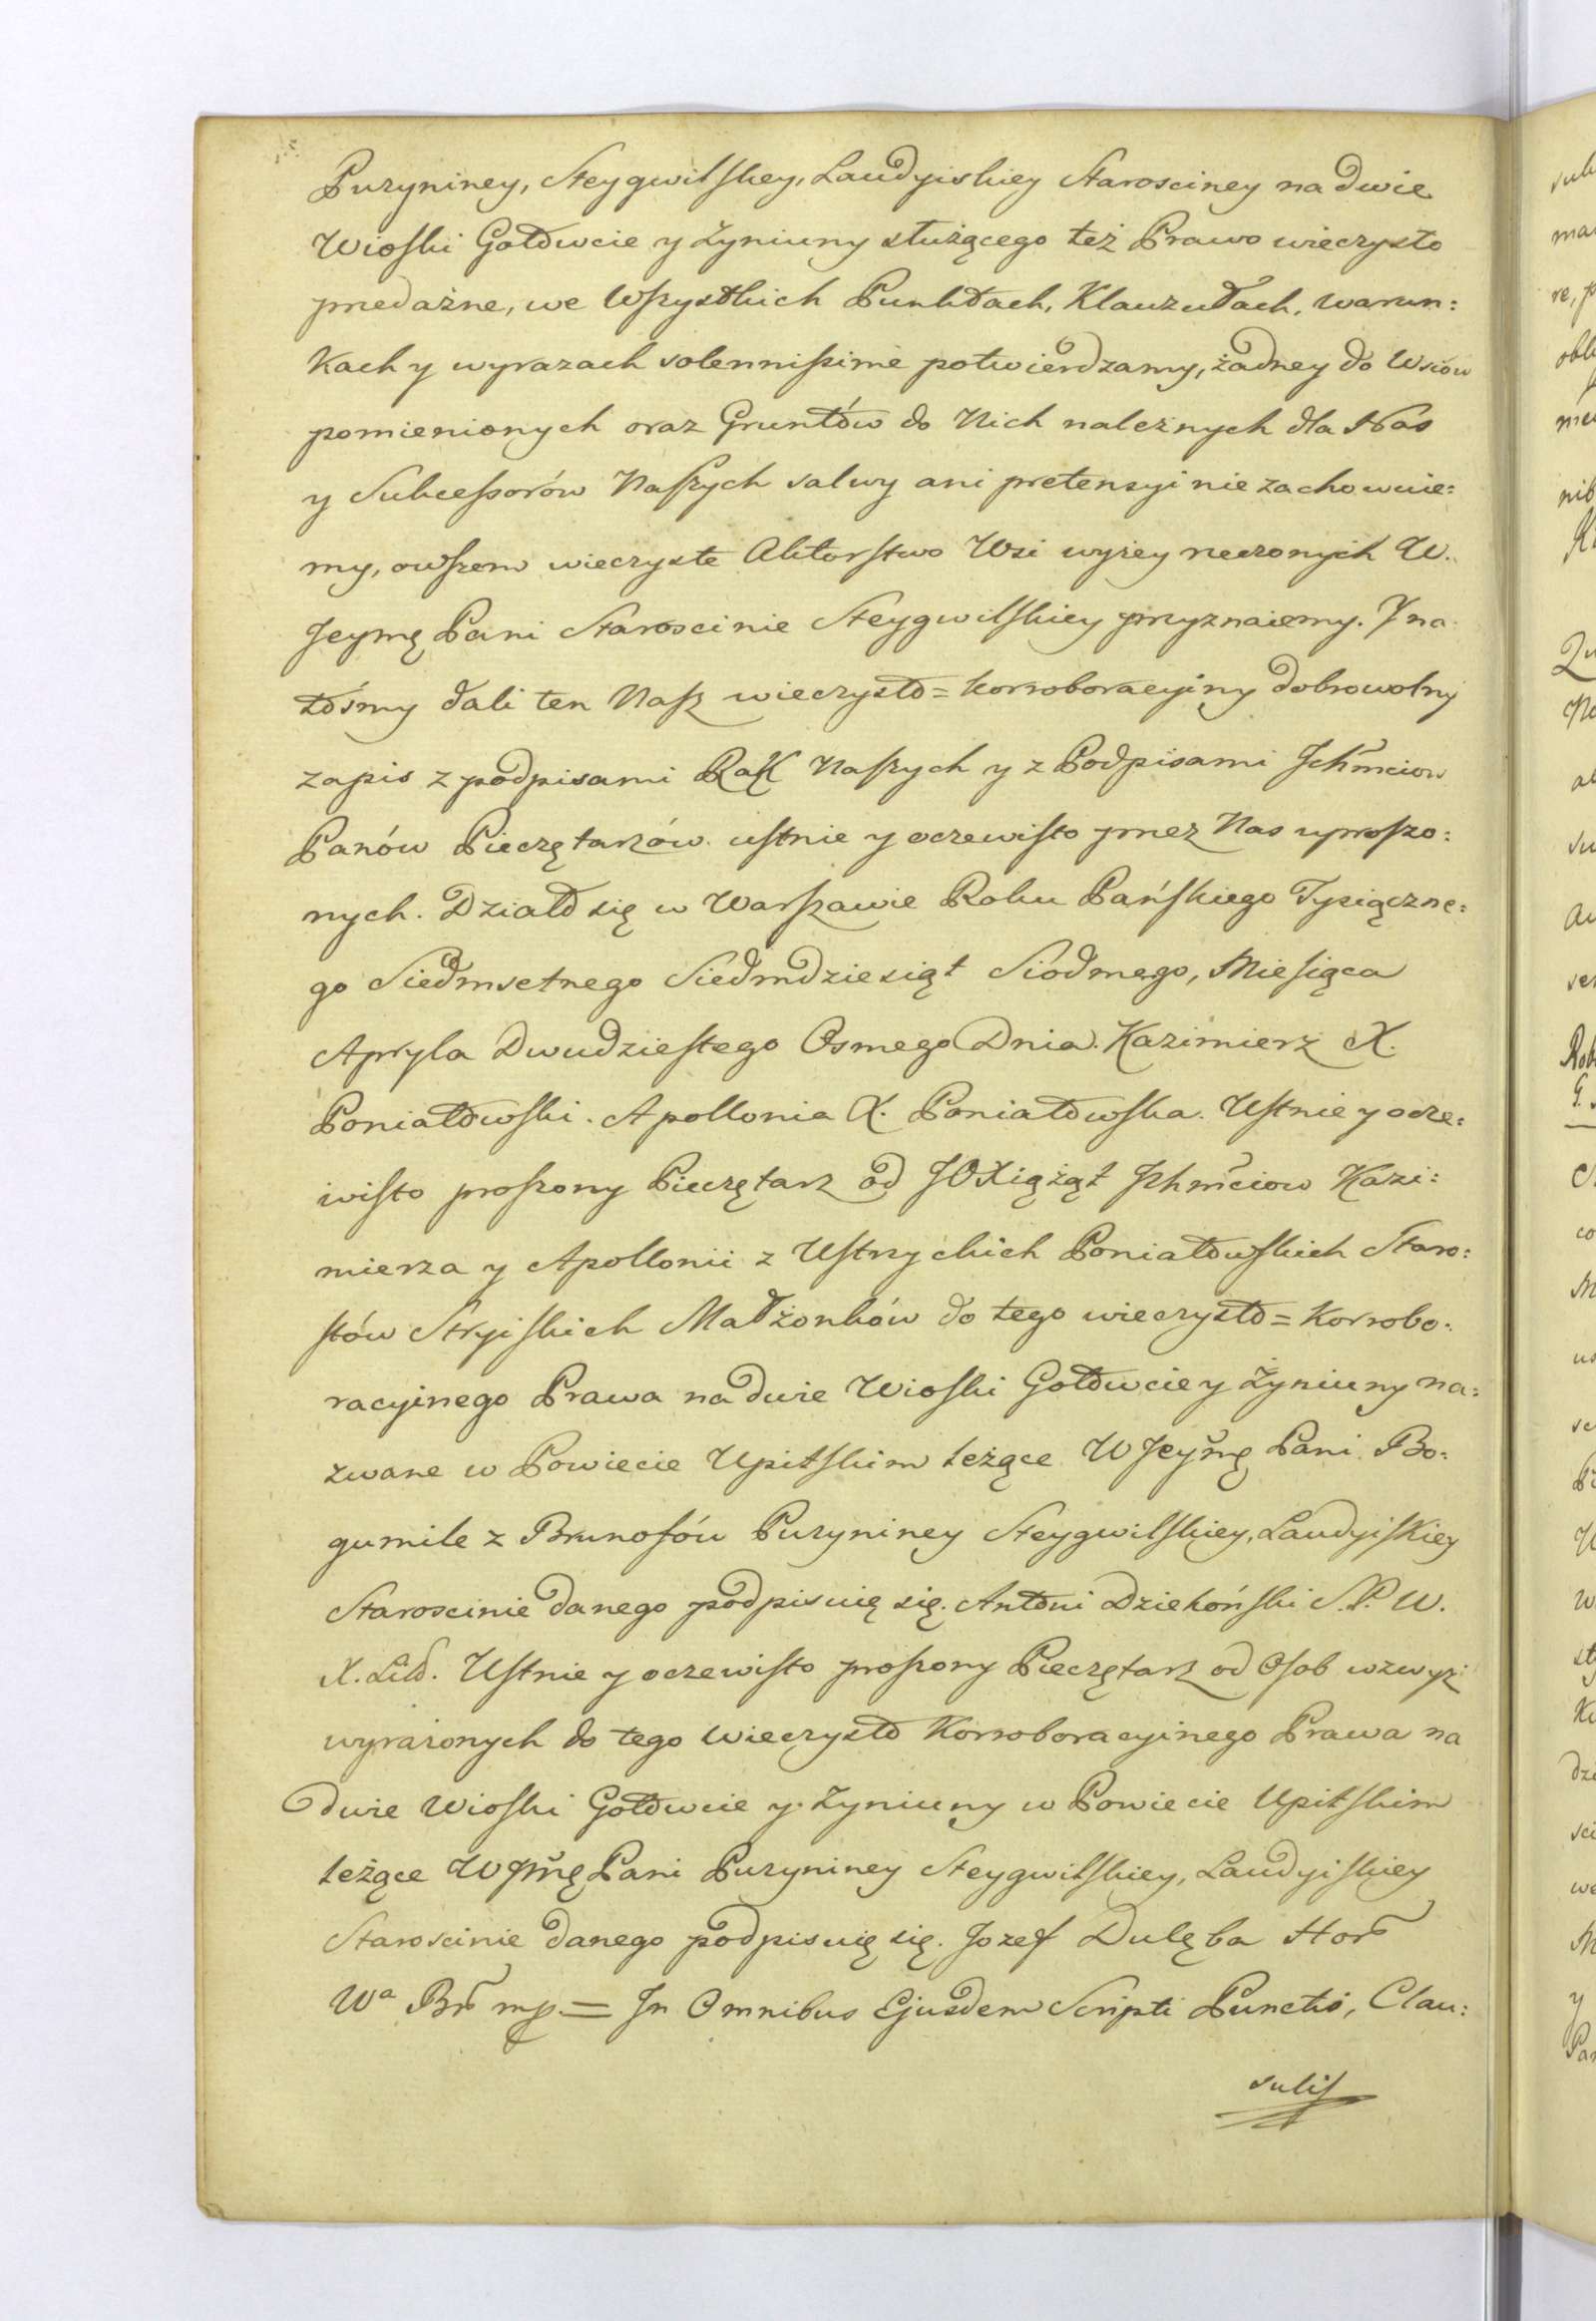 Puzyniney, Steygwilskiey, Laudyiskiey Starosciney na dwie
Wioski Gotowcie y Żyniuny służącego też Prawo wieczysto
przedażne, we Wszystkich Punktach, Klauzułach, warun:
kach y wyrazach solennissime potwierdzamy, żadney do Wsiow
pomienionych oraz Gruntów do Nich należnych dla Nas
y Sukcessorów Naszych salwy ani pretensyi nie zachowuie:
my, owszem wieczyste Aktorstwo Wsi wyżey rzeczonych W.
Jeymę Pani Staroscinie Steygwilskiey przyznaiemy. Y na
tośmy dali ten Nasz wieczysto = korroboracyiny dobrowolny
zapis z podpisami Rąk Naszych y z Podpisami Jchmciow
Panów Pieczętarzów ustnie y oczewisto przez Nas uproszo:
nych. Działo się w Warszawie Roku Pańskiego Tysiączne:
go Siedmsetnego Siedmdziesiąt Siodmego, Miesiąca
Apryla Dwudziestego Osmego Dnia. Kazimierz X.
Poniatowski. Apollonia X. Poniatowska. Ustnie y ocze:
wisto proszony Pieczętarz od JOXiążąt Jchmciow Kazi:
mierza y Apollonii z Ustrzyckich Poniatowskich Staro:
stów Stryiskich Małżonków do tego wieczysto = Korrobo:
racyinego Prawa na dwie Wioski Gotowcie y Żyniuny na:
zwane w Powiecie Upitskim leżące W Jeymę Pani Bo:
gumile z Brunofów Puzyniney Steygwilskiey, Laudyiskiey
Staroscinie danego podpisuię się. Antoni Dziekoński S. P. W.
X. Lit. Ustnie y oczewisto proszony Pieczętarz od Osob wzwyż
wyrażonych do tego wieczysto Korroboracyinego Prawa na
dwie Wioski Gotowcie y Żyniuny w Powiecie Upitskim
leżące WJmę Pani Puzyniney Steygwilskiey, Laudyiskiey
Staroscinie danego podpisuię się. Jozef Dulęba Hor
Wa Br mp. = In Omnibus Ejusdem Scripti Punctis, Clau:
sulis